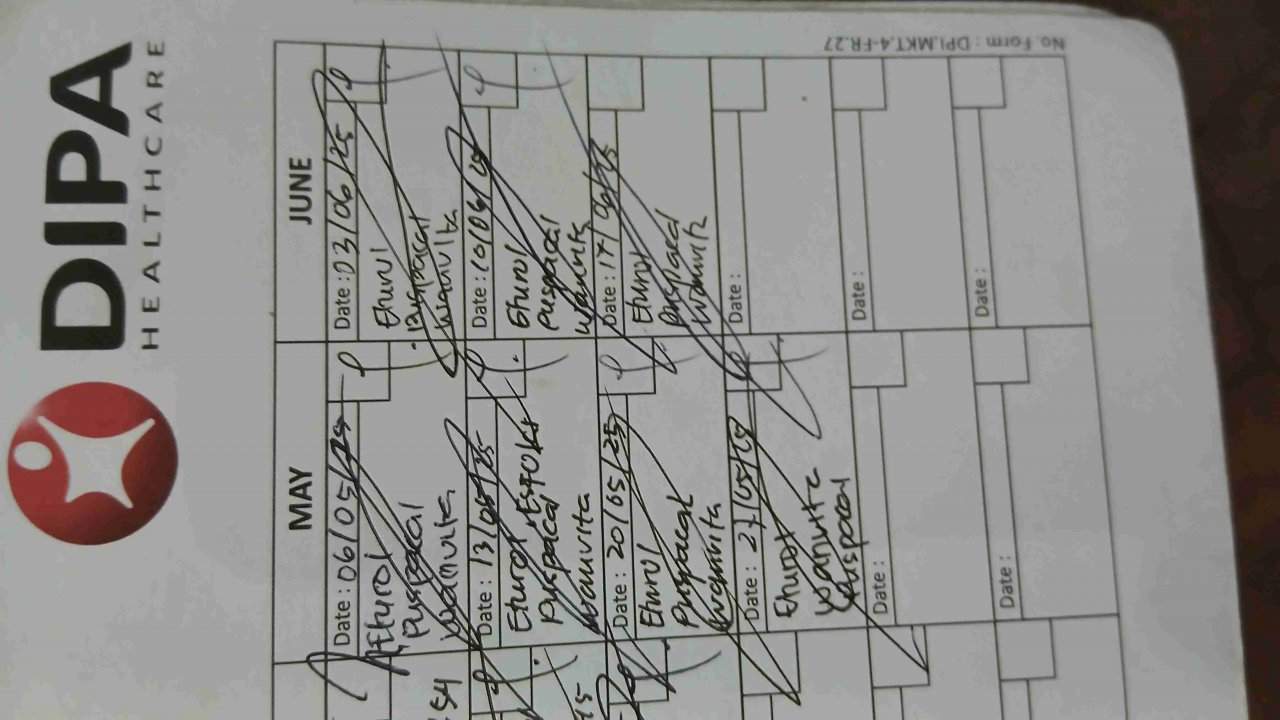 DIPA
HEALTHCARE
No. Form : DPI.MKT.4-FR.27
MAY
Date : 06/05/25
Eturol
Puspacal
Wanvita
Date : 13/05/25
Eturol
Puspacal
Wanvita
Date : 20/05/25
Eturol
Puspacal
Wanvita
Date : 27/05/25
Eturol
Wanvita
Puspacal
Date :
Date :
JUNE
Date : 03/06/25
Eturol
Puspacal
Wanvita
Date : 10/06/25
Eturol
Puspacal
Wanvita
Date : 17/06/25
Eturol
Puspacal
Wanvita
Date :
Date :
Date :